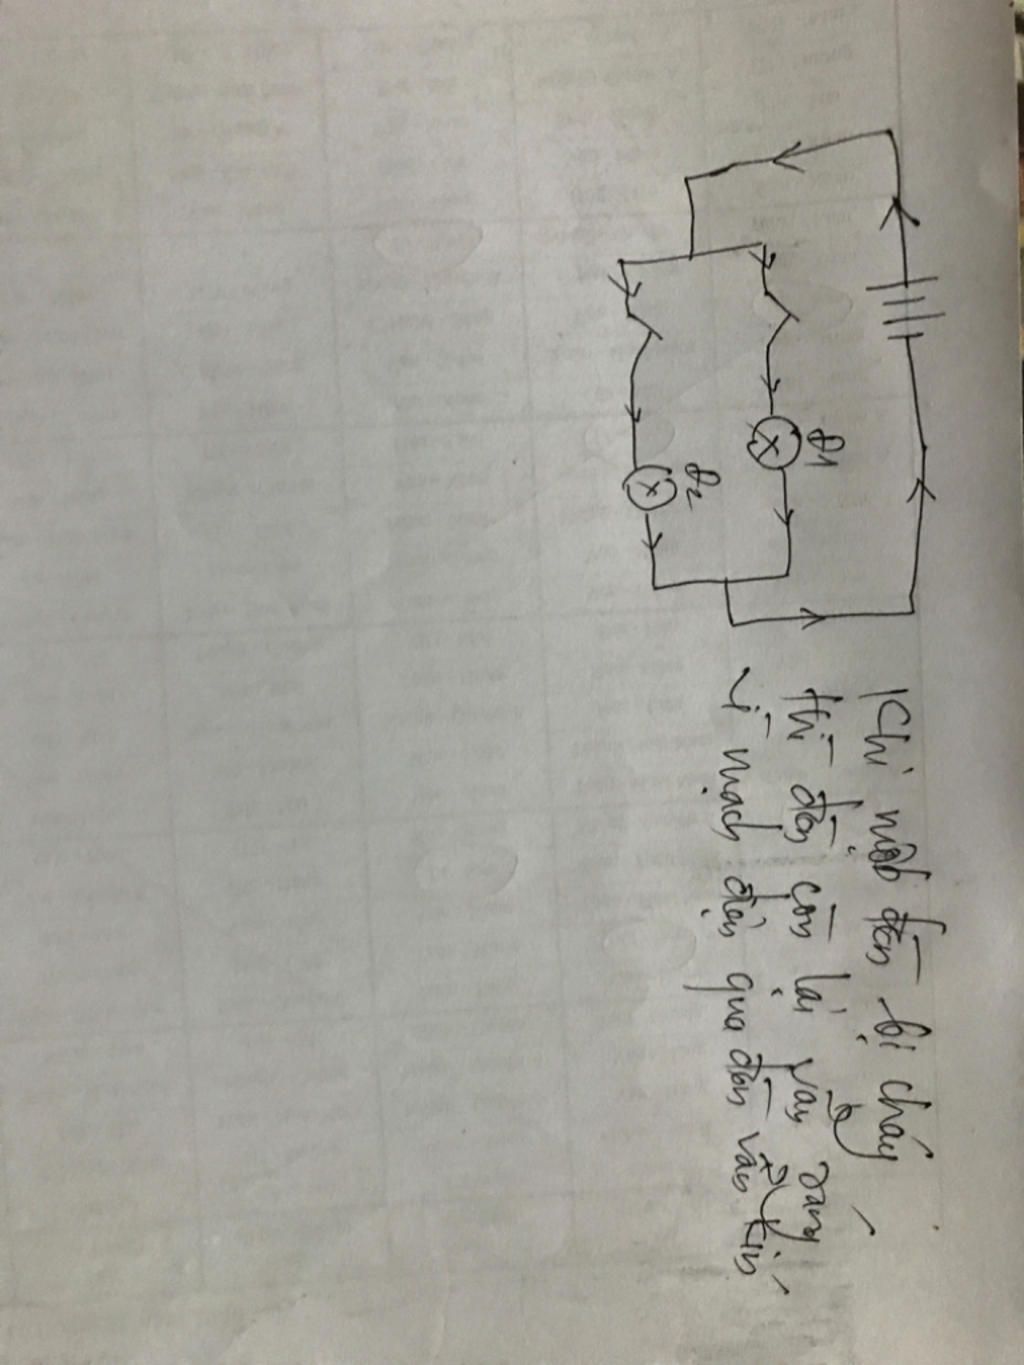 Đ1
Đ2
Khi một đèn bị cháy
thì đèn còn lại vẫn sáng
vì mạch điện qua đèn vẫn kín